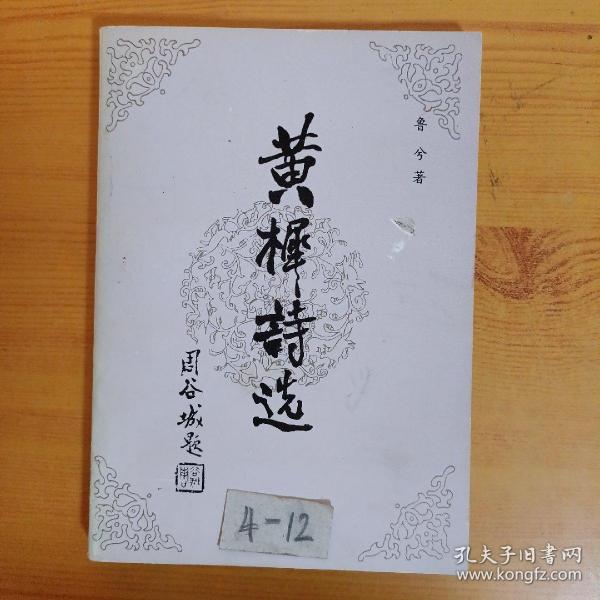 鲁兮著
黄樨詩选
周谷城题
4-12
孔夫子旧书网
www.kongfz.com